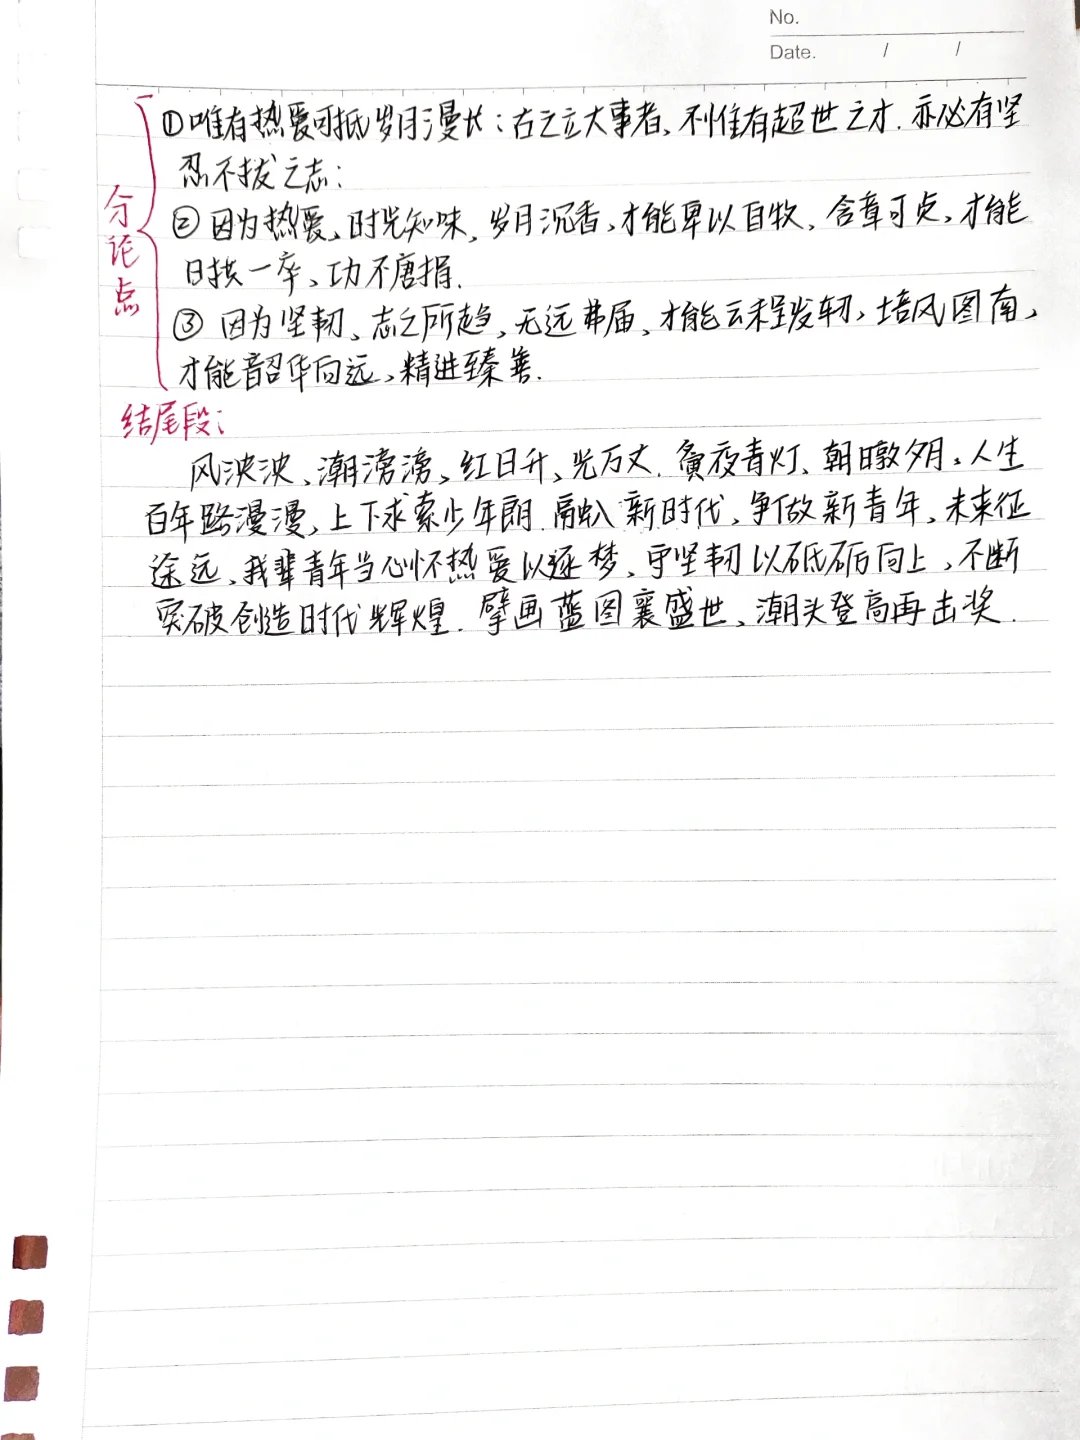 No.
Date. / /
分论点
①唯有热爱可抵岁月漫长:古之立大事者、不惟有超世之才.亦必有坚
忍不拔之志;
②因为热爱、时光知味、岁月沉香,才能卑以自牧、含章可贞,才能
日拱一卒、功不唐捐.
③因为坚韧、志之所趋、无远弗届、才能云程发轫,培风图南,
才能韶华向远、精进臻善.
结尾段:
风泱泱、潮滂滂、红日升、光万丈.夤夜青灯、朝暾夕月、人生
百年路漫漫,上下求索少年朗.南帆新时代、争做新青年、未来征
途远、我辈青年当心怀热爱以逐梦、守坚韧以砥砺向上,不断
突破创造时代辉煌.擘画蓝图襄盛世、潮头登高再击桨.